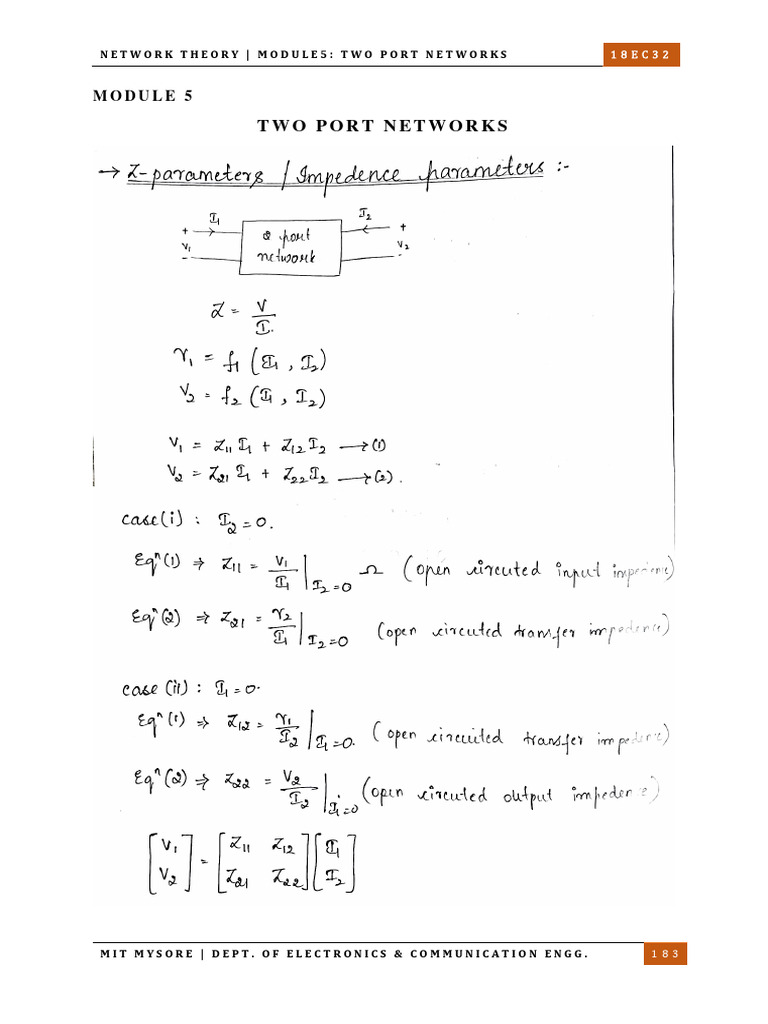 NETWORK THEORY | MODULE5: TWO PORT NETWORKS 18EC32
MODULE 5
TWO PORT NETWORKS
→ Z-parameters / Impedence parameters :-
I₁ I₂
+ 2 port +
V₁ network V₂
- -
Z = V/I
V₁ = f₁ (I₁, I₂)
V₂ = f₂ (I₁, I₂)
V₁ = Z₁₁ I₁ + Z₁₂ I₂ → (1)
V₂ = Z₂₁ I₁ + Z₂₂ I₂ → (2).
case(i) : I₂ = 0.
Eqⁿ(1) ⇒ Z₁₁ = V₁/I₁ |I₂=0 Ω (open circuited input impedence)
Eqⁿ(2) ⇒ Z₂₁ = V₂/I₁ |I₂=0 (open circuited transfer impedence)
case (ii) : I₁ = 0.
Eqⁿ(1) ⇒ Z₁₂ = V₁/I₂ |I₁=0. (open circuited transfer impedence)
Eqⁿ(2) ⇒ Z₂₂ = V₂/I₂ |I₁=0 (open circuited output impedence)
[V₁] = [Z₁₁ Z₁₂] [I₁]
[V₂] [Z₂₁ Z₂₂] [I₂]
MIT MYSORE | DEPT. OF ELECTRONICS & COMMUNICATION ENGG. 183